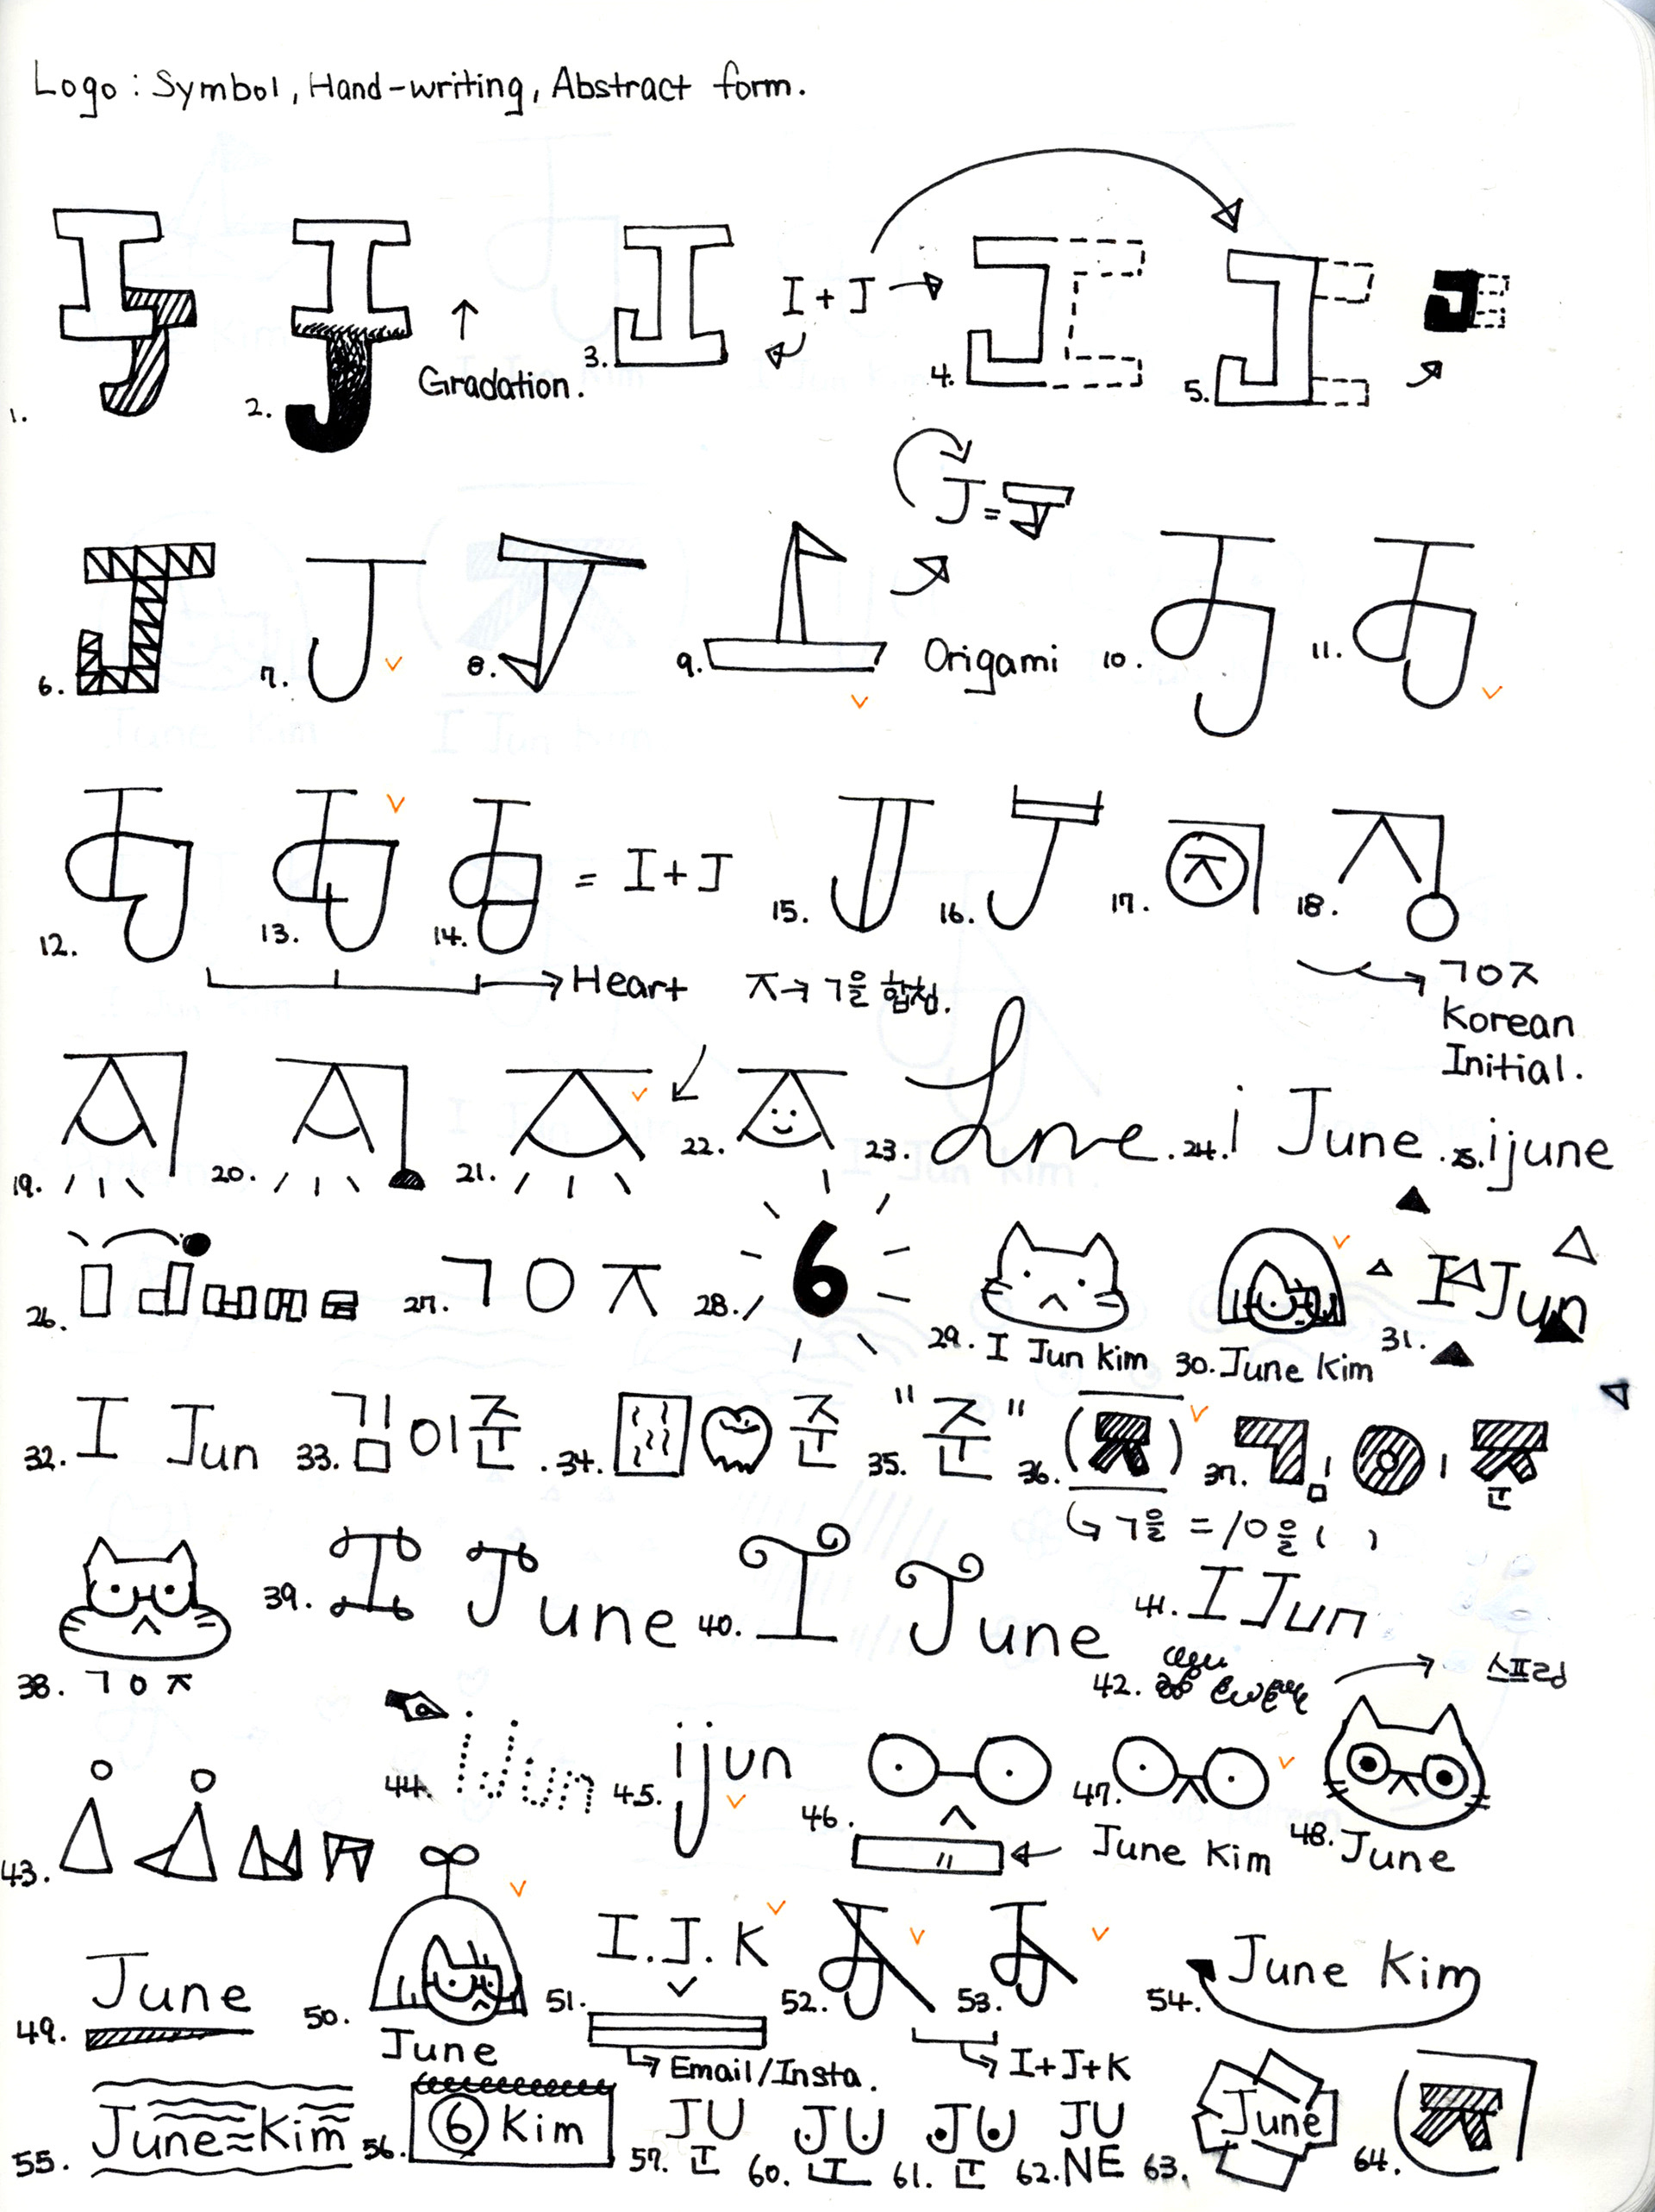 Logo : Symbol, Hand-writing, Abstract form.
1.
2.
Gradation.
3.
I + J
4.
5.
6.
7.
8.
9.
J =
Origami
10.
11.
12.
13.
14.
= I + J
15.
16.
17. ㅈ
18.
Heart
ㅈ → ㄱ을 합침.
ㄱㅇㅈ
Korean
Initial.
19.
20.
21.
22.
23. June.
24. i June.
25. ijune
26. i June
27. ㄱㅇㅈ
28. 6
29. I Jun kim
30. June Kim
31. I Jun
32. I Jun
33. 김이준.
34. 준
35. "준"
36. (ㅈ)
37. 김이준
ㄱ을 = / ㅇ을 ( )
38. ㄱㅇㅈ
39. I June
40. I June
41. I Jun
42.
스프링
43.
44. iJun
45. ijun
46.
47.
June Kim
48. June
49. June
50. June
51. I. J. K
Email/Insta.
52.
53.
I+J+K
54. June Kim
55. June≈Kim
56. 6 Kim
57. JU
60. JU
61. JU
62. JU
NE
63. June
64. ㅈ